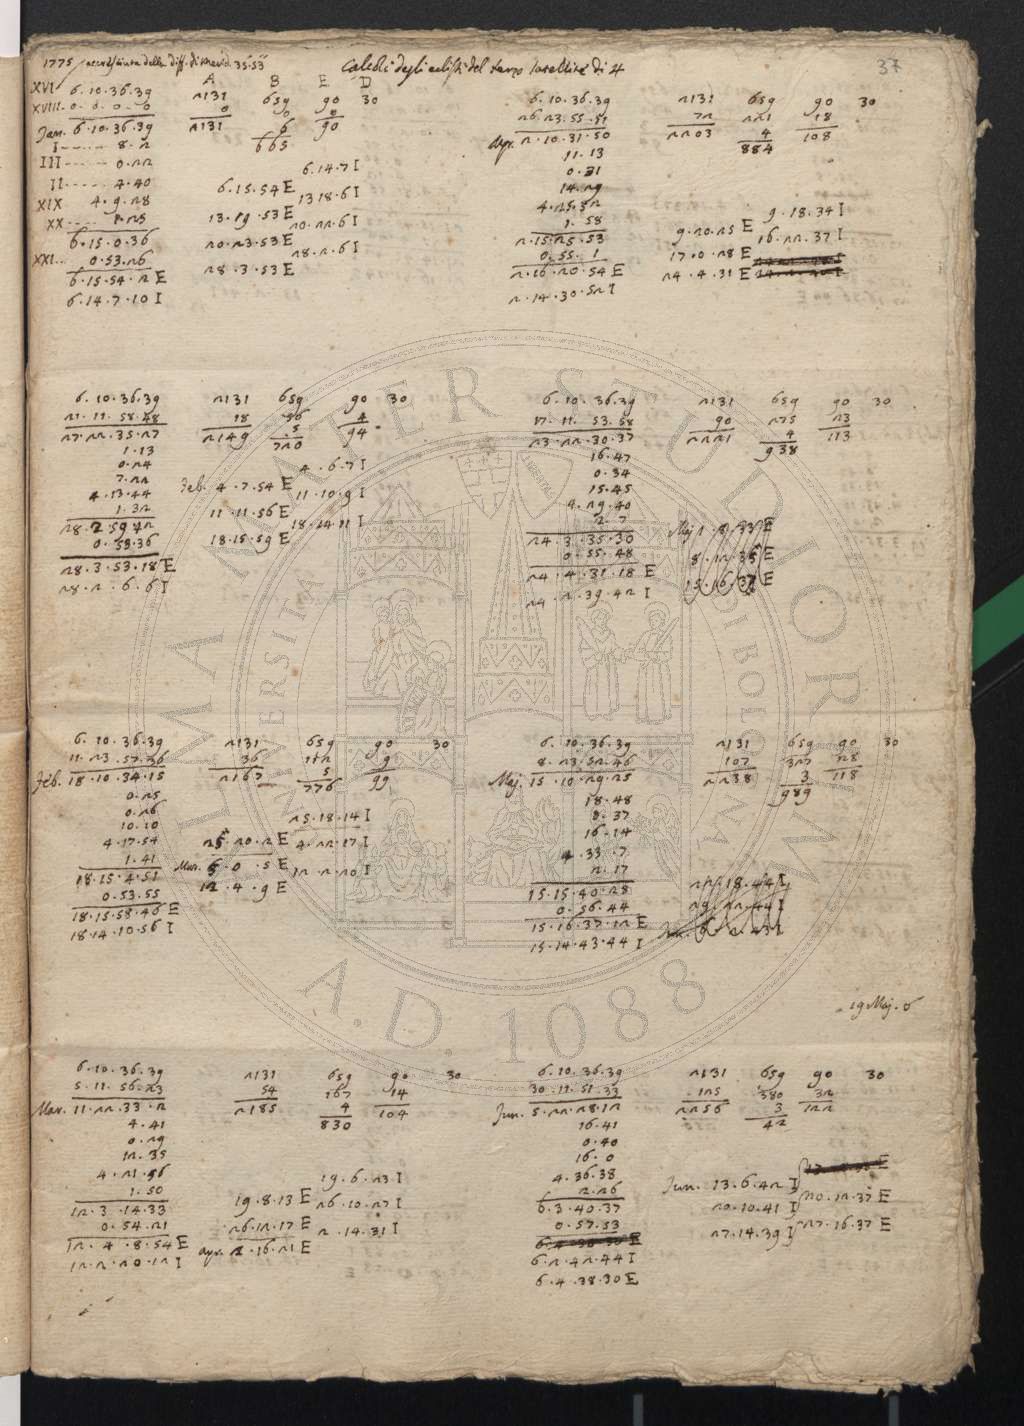 1775 accresciuta della diff. di Merid. 35.53
Calcoli degli eclissi del terzo Satellite di ♃
37
A B E D
XVI 6.10.36.39 2131 659 90 30
XVIII 0.0.0.0 0 0 0
Jan. 6.10.36.39 2131 6 90
I 8.2 665
III 0.22
II 4.40
XIX 4.9.28
XX 1.25
6.15.0.36
XXI 0.53.26
6.15.54.2 E
6.14.7.10 I
6.14.7 I
6.15.54 E
13.18.6 I
13.19.53 E
20.22.6 I
20.23.53 E
28.2.6 I
28.3.53 E
6.10.36.39 2131 659 90 30
26.23.55.11 72 221 18
Apr. 2.10.31.50 2203 4 108
11.13 884
0.31
14.29
4.25.52
1.58
2.15.25.53
0.55.1
2.16.20.54 E
2.14.30.52 I
9.18.34 I
9.20.25 E
16.22.37 I
17.0.28 E
24.4.31 E
6.10.36.39 2131 659 90 30
21.11.58.48 18 56 4
27.22.35.27 2149 5 94
1.13 720
0.24
7.22
4.13.44
1.32
28.2.59.42
0.53.36
28.3.53.18 E
28.2.6.6 I
4.6.7 I
Feb. 4.7.54 E
11.10.9 I
11.11.56 E
18.14.11 I
18.15.59 E
6.10.36.39 2131 659 90 30
17.11.53.58 90 275 23
23.22.30.37 2221 4 113
16.47 938
0.34
15.45
4.29.40
2.7
24.3.35.30
0.55.48
24.4.31.18 E
24.2.39.42 I
Maj 1.8.33 E
8.12.35 E
15.16.37 E
6.10.36.39 2131 659 90 30
11.23.57.36 36 112 9
Feb. 18.10.34.15 2167 5 99
0.25 776
0.26
10.10
4.17.54
1.41
18.15.4.51
0.53.55
18.15.58.46 E
18.14.10.56 I
25.18.14 I
25.20.2 E
4.22.17 I
Mar. 5.0.5 E
12.2.20 I
12.4.9 E
6.10.36.39 2131 659 90 30
8.23.52.46 107 327 28
Maj. 15.10.29.25 2238 3 118
18.48 989
0.37
16.14
4.33.7
2.17
15.15.40.28
0.56.44
15.16.37.12 E
15.14.43.44 I
22.18.44 I
29.22.44 I
19 Maj. ☌
6.10.36.39 2131 659 90 30
5.11.56.23 54 167 14
Mar. 11.22.33.2 2185 4 104
4.41 830
0.29
12.35
4.21.56
1.50
12.3.14.33
0.54.21
12.4.8.54 E
12.2.20.12 I
19.6.23 I
19.8.13 E
26.10.27 I
26.12.17 E
2.14.31 I
Apr. 2.16.21 E
6.10.36.39 2131 659 90 30
30.11.51.33 125 380 32
Jun. 5.22.28.12 2256 3 122
16.41 42
0.40
16.0
4.36.38
2.26
6.3.40.37
0.57.53
6.2.42.44 I
6.4.38.30 E
Jun. 13.6.42 I
20.10.41 I
20.12.37 E
27.14.39 I
27.16.37 E